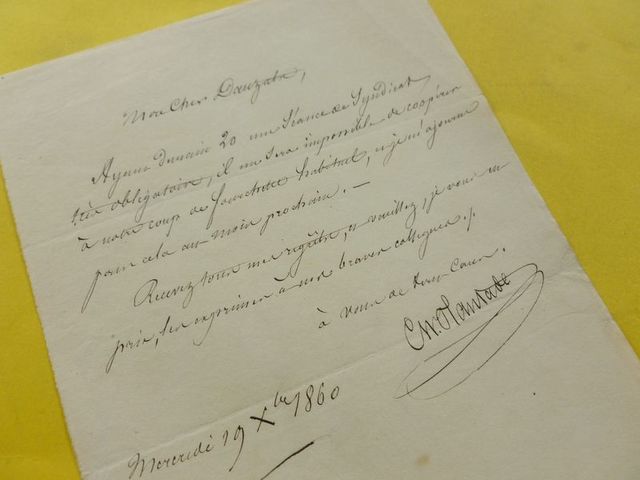 Mon Cher Dauzats,
Ayant demain 20 une Séance de Syndicat,
très obligatoire, il me sera impossible de coopérer
à notre coup de fourchette habituel, et je m'ajourne
pour cela au mois prochain. —
Recevez tous mes regrets, et veuillez, je vous en
prie, les exprimer à nos braves collègues ./.
à vous de tout Cœur.
Mercredi 19 Xbre 1860